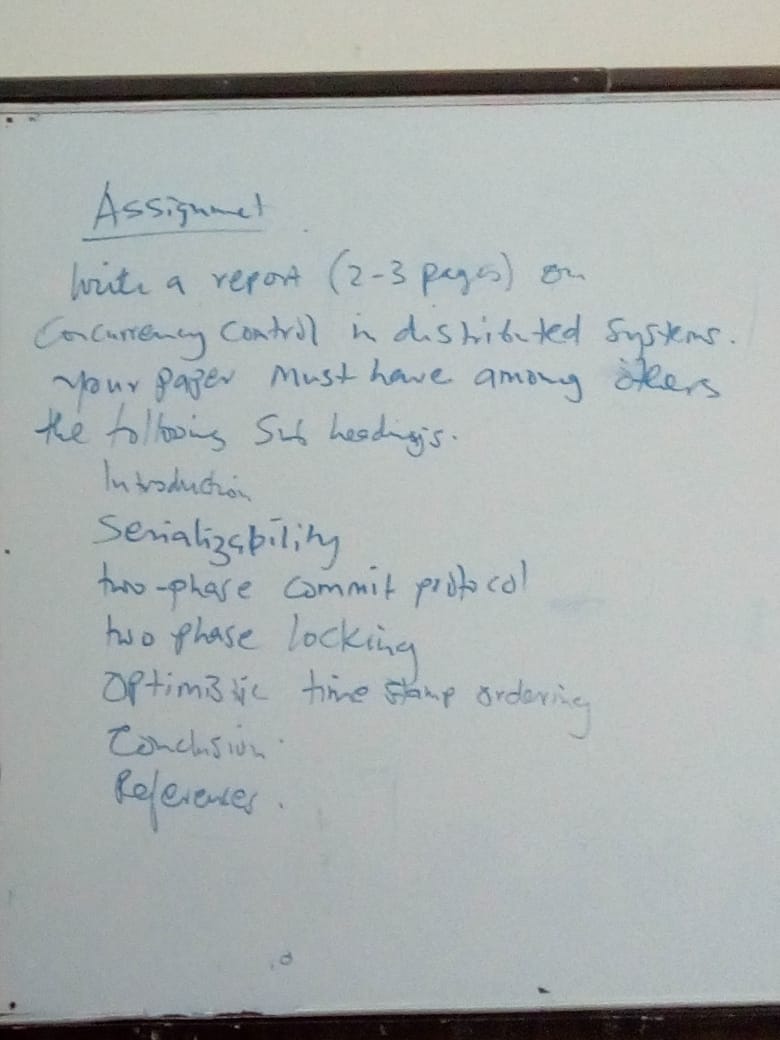 Assignmet
Write a report (2-3 pages) on
Concurrency control in distributed systems.
your paper must have among others
the following sub headings.
Introduction
Serializability
two-phase commit protocol
two phase locking
Optimistic time stamp ordering
Conclusion.
References.